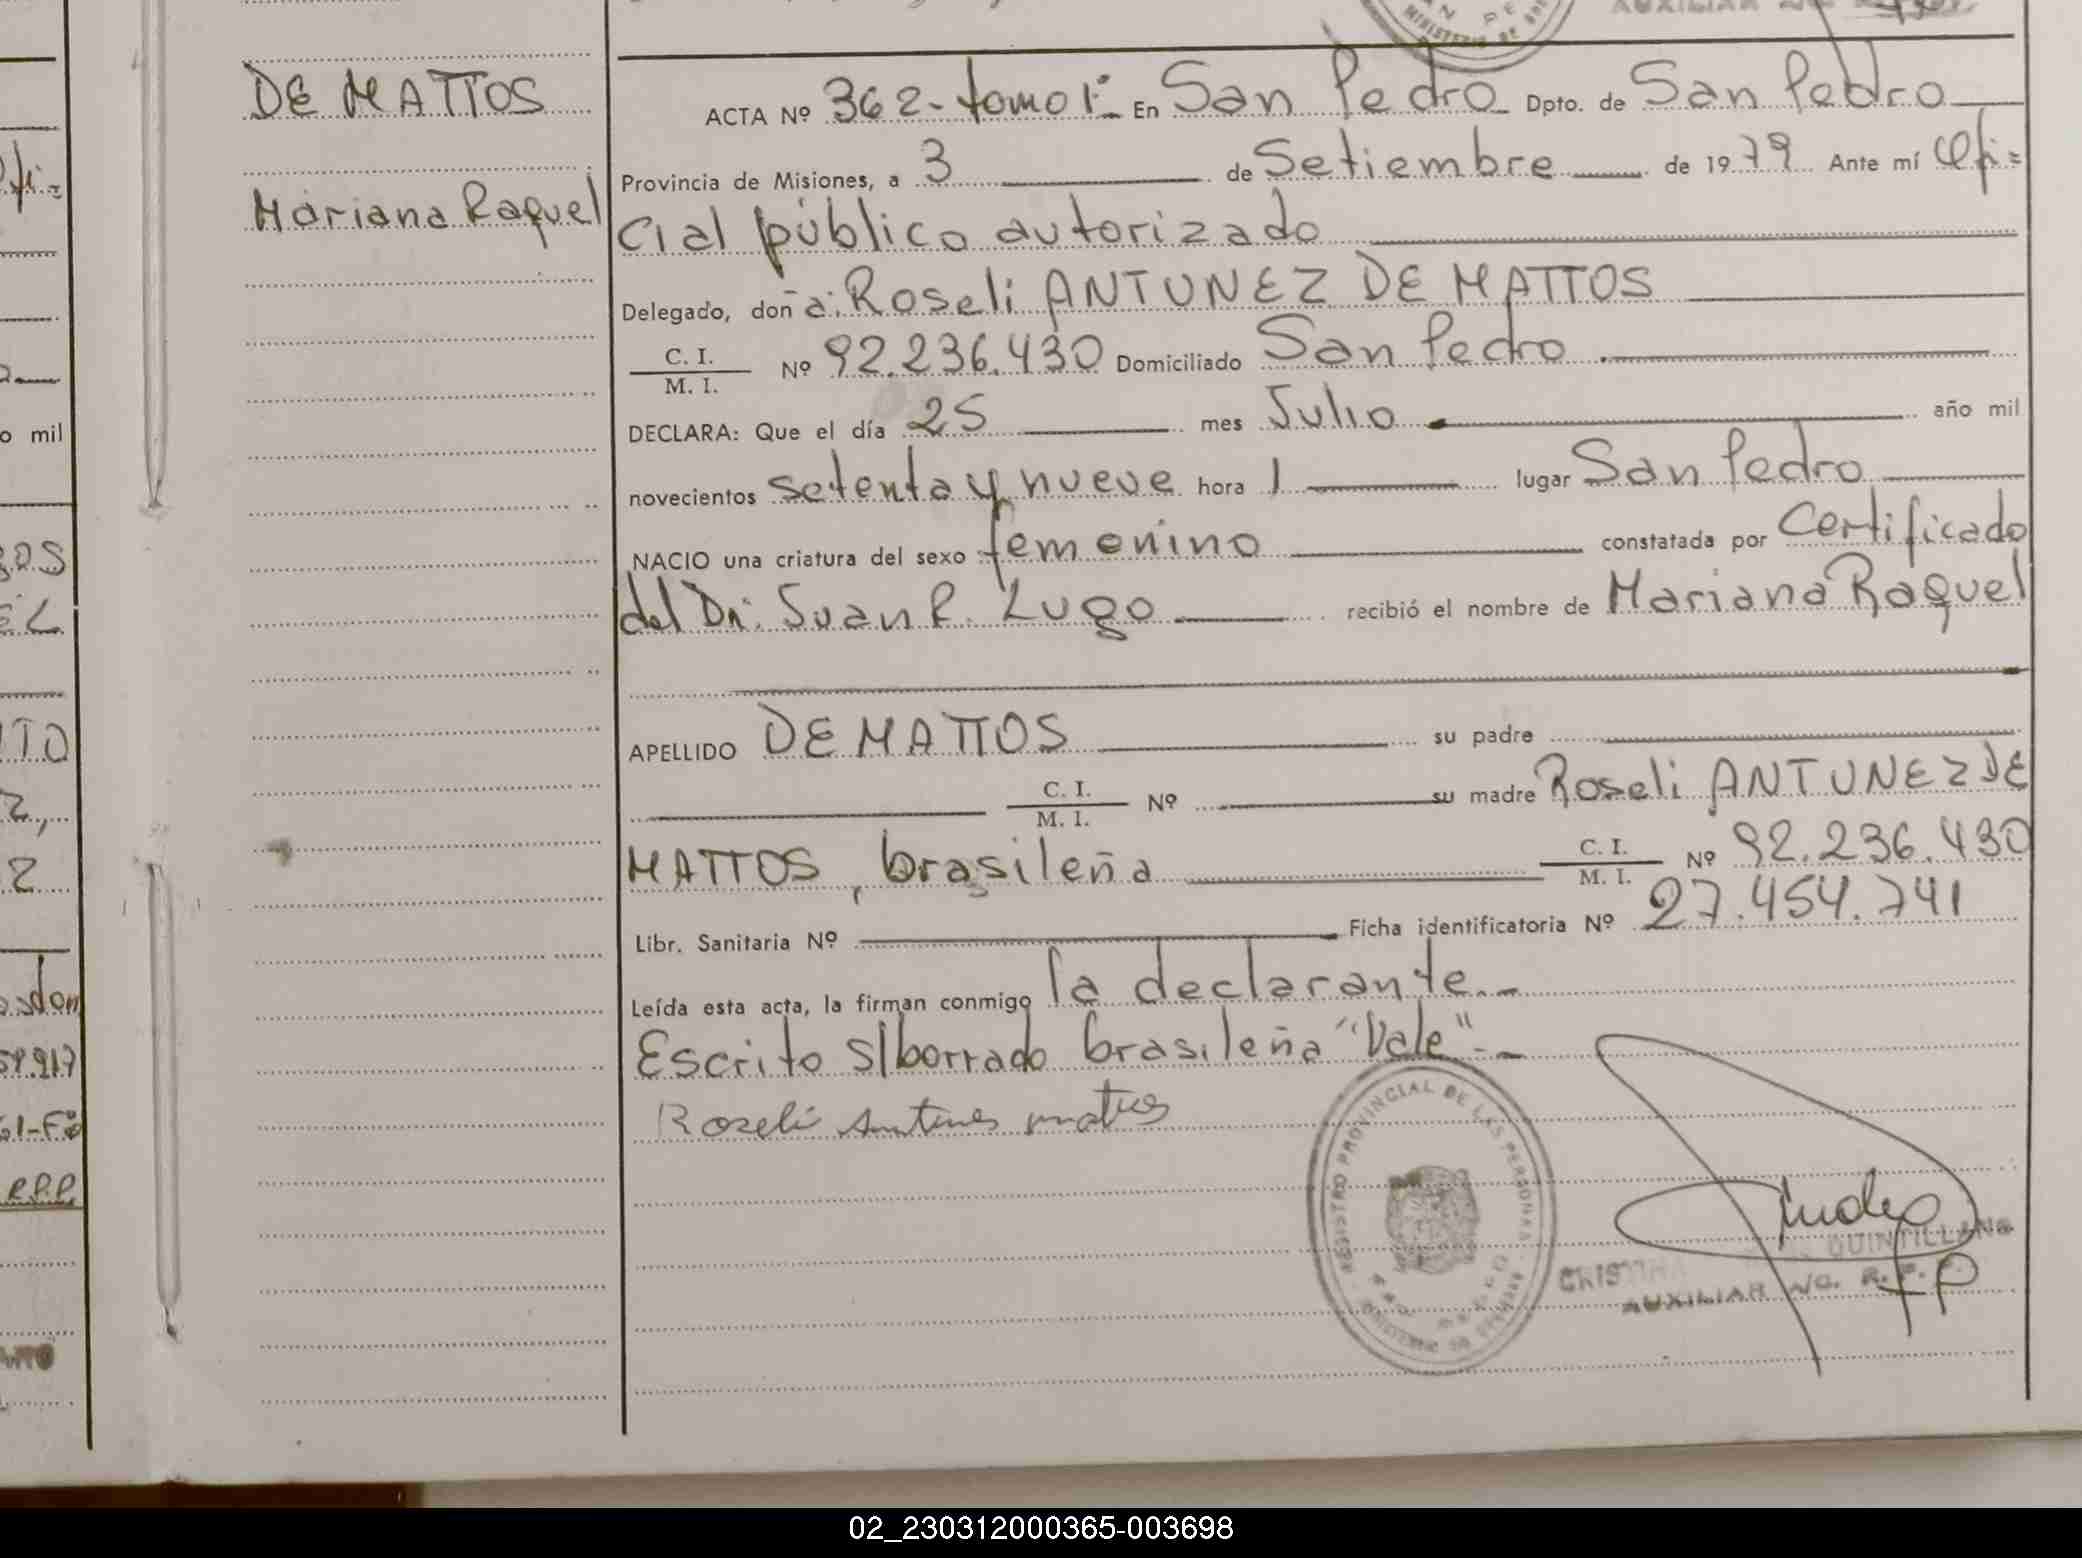 DE MATTOS
Mariana Raquel
AUXILIAR
MINISTERIO DE
ACTA Nº 362- tomo 1º En San Pedro Dpto. de San Pedro
Provincia de Misiones, a 3 de Setiembre de 1979 Ante mí Ofi=
cial público autorizado
Delegado, doña: Roseli ANTUNEZ DE MATTOS
C. I.
M. I. Nº 92.236.430 Domiciliado San Pedro
DECLARA: Que el día 25 mes Julio año mil
novecientos setenta y nueve hora 1 lugar San Pedro
NACIO una criatura del sexo femenino constatada por Certificado
del Dr. Juan R. Lugo recibió el nombre de Mariana Raquel
APELLIDO DE MATTOS su padre
C. I.
M. I. Nº su madre Roseli ANTUNEZ DE
MATTOS, brasileña C. I.
M. I. Nº 92.236.430
Libr. Sanitaria Nº Ficha identificatoria Nº 27.454.741
Leída esta acta, la firman conmigo la declarante.-
Escrito s/borrado brasileña "Vale".-
Roseli Antunes matos
REGISTRO PROVINCIAL DE LAS PERSONAS
QUINTILLANA
AUXILIAR A/C. R. P. P.
o mil
R.P.P.
02_230312000365-003698